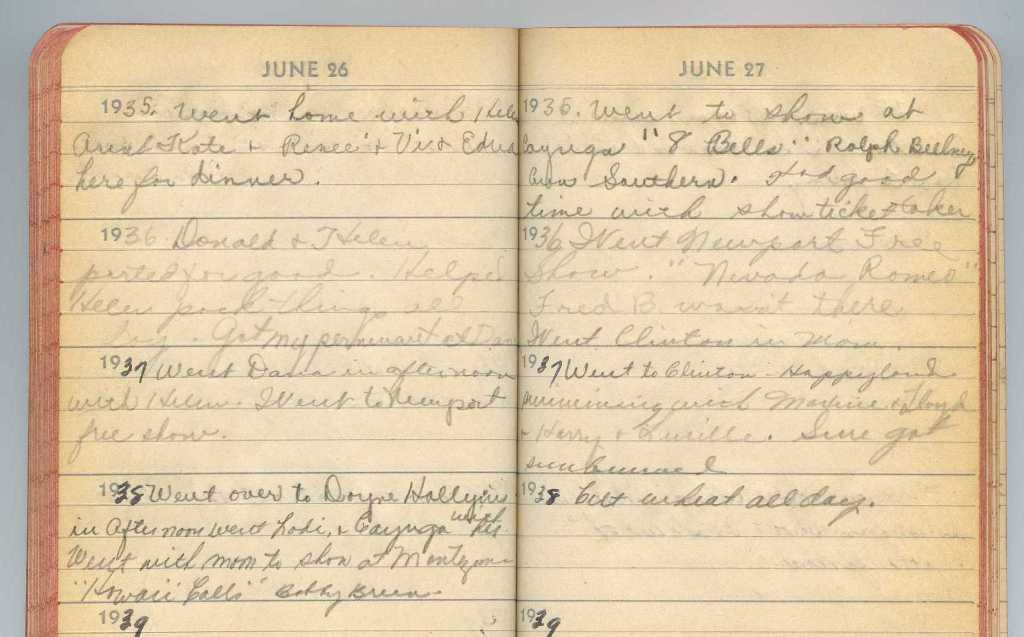 JUNE 26
1935. Went home with Helen
Aunt Kate + Renee + Vi + Edna
here for dinner.
1936 Donald + Helen
parted for good. Helped
Helen pack things all
day. Got my permanent at Dana
1937 Went Dana in afternoon
with Helen. Went to Newport
free show.
1938 Went over to Doyne
in Afternoon went Lodi, + Cayuga with his
Went with mom to show at Montezuma
"Hawaii Calls" Bobby Breen.
1939
JUNE 27
1935. Went to show at
Cayuga "8 Bells" Ralph Bellamy
Ann Southern. Had good
time with show ticket taker
1936 Went Newport Free
Show. "Nevada Romeo"
Fred B. wasn't there
Went Clinton in Morn.
1937 Went to Clinton - Happyland
swimming with Maxine + Floyd
+ Harry + Lucille. Sure got
sunburned
1938 Cut wheat all day.
1939